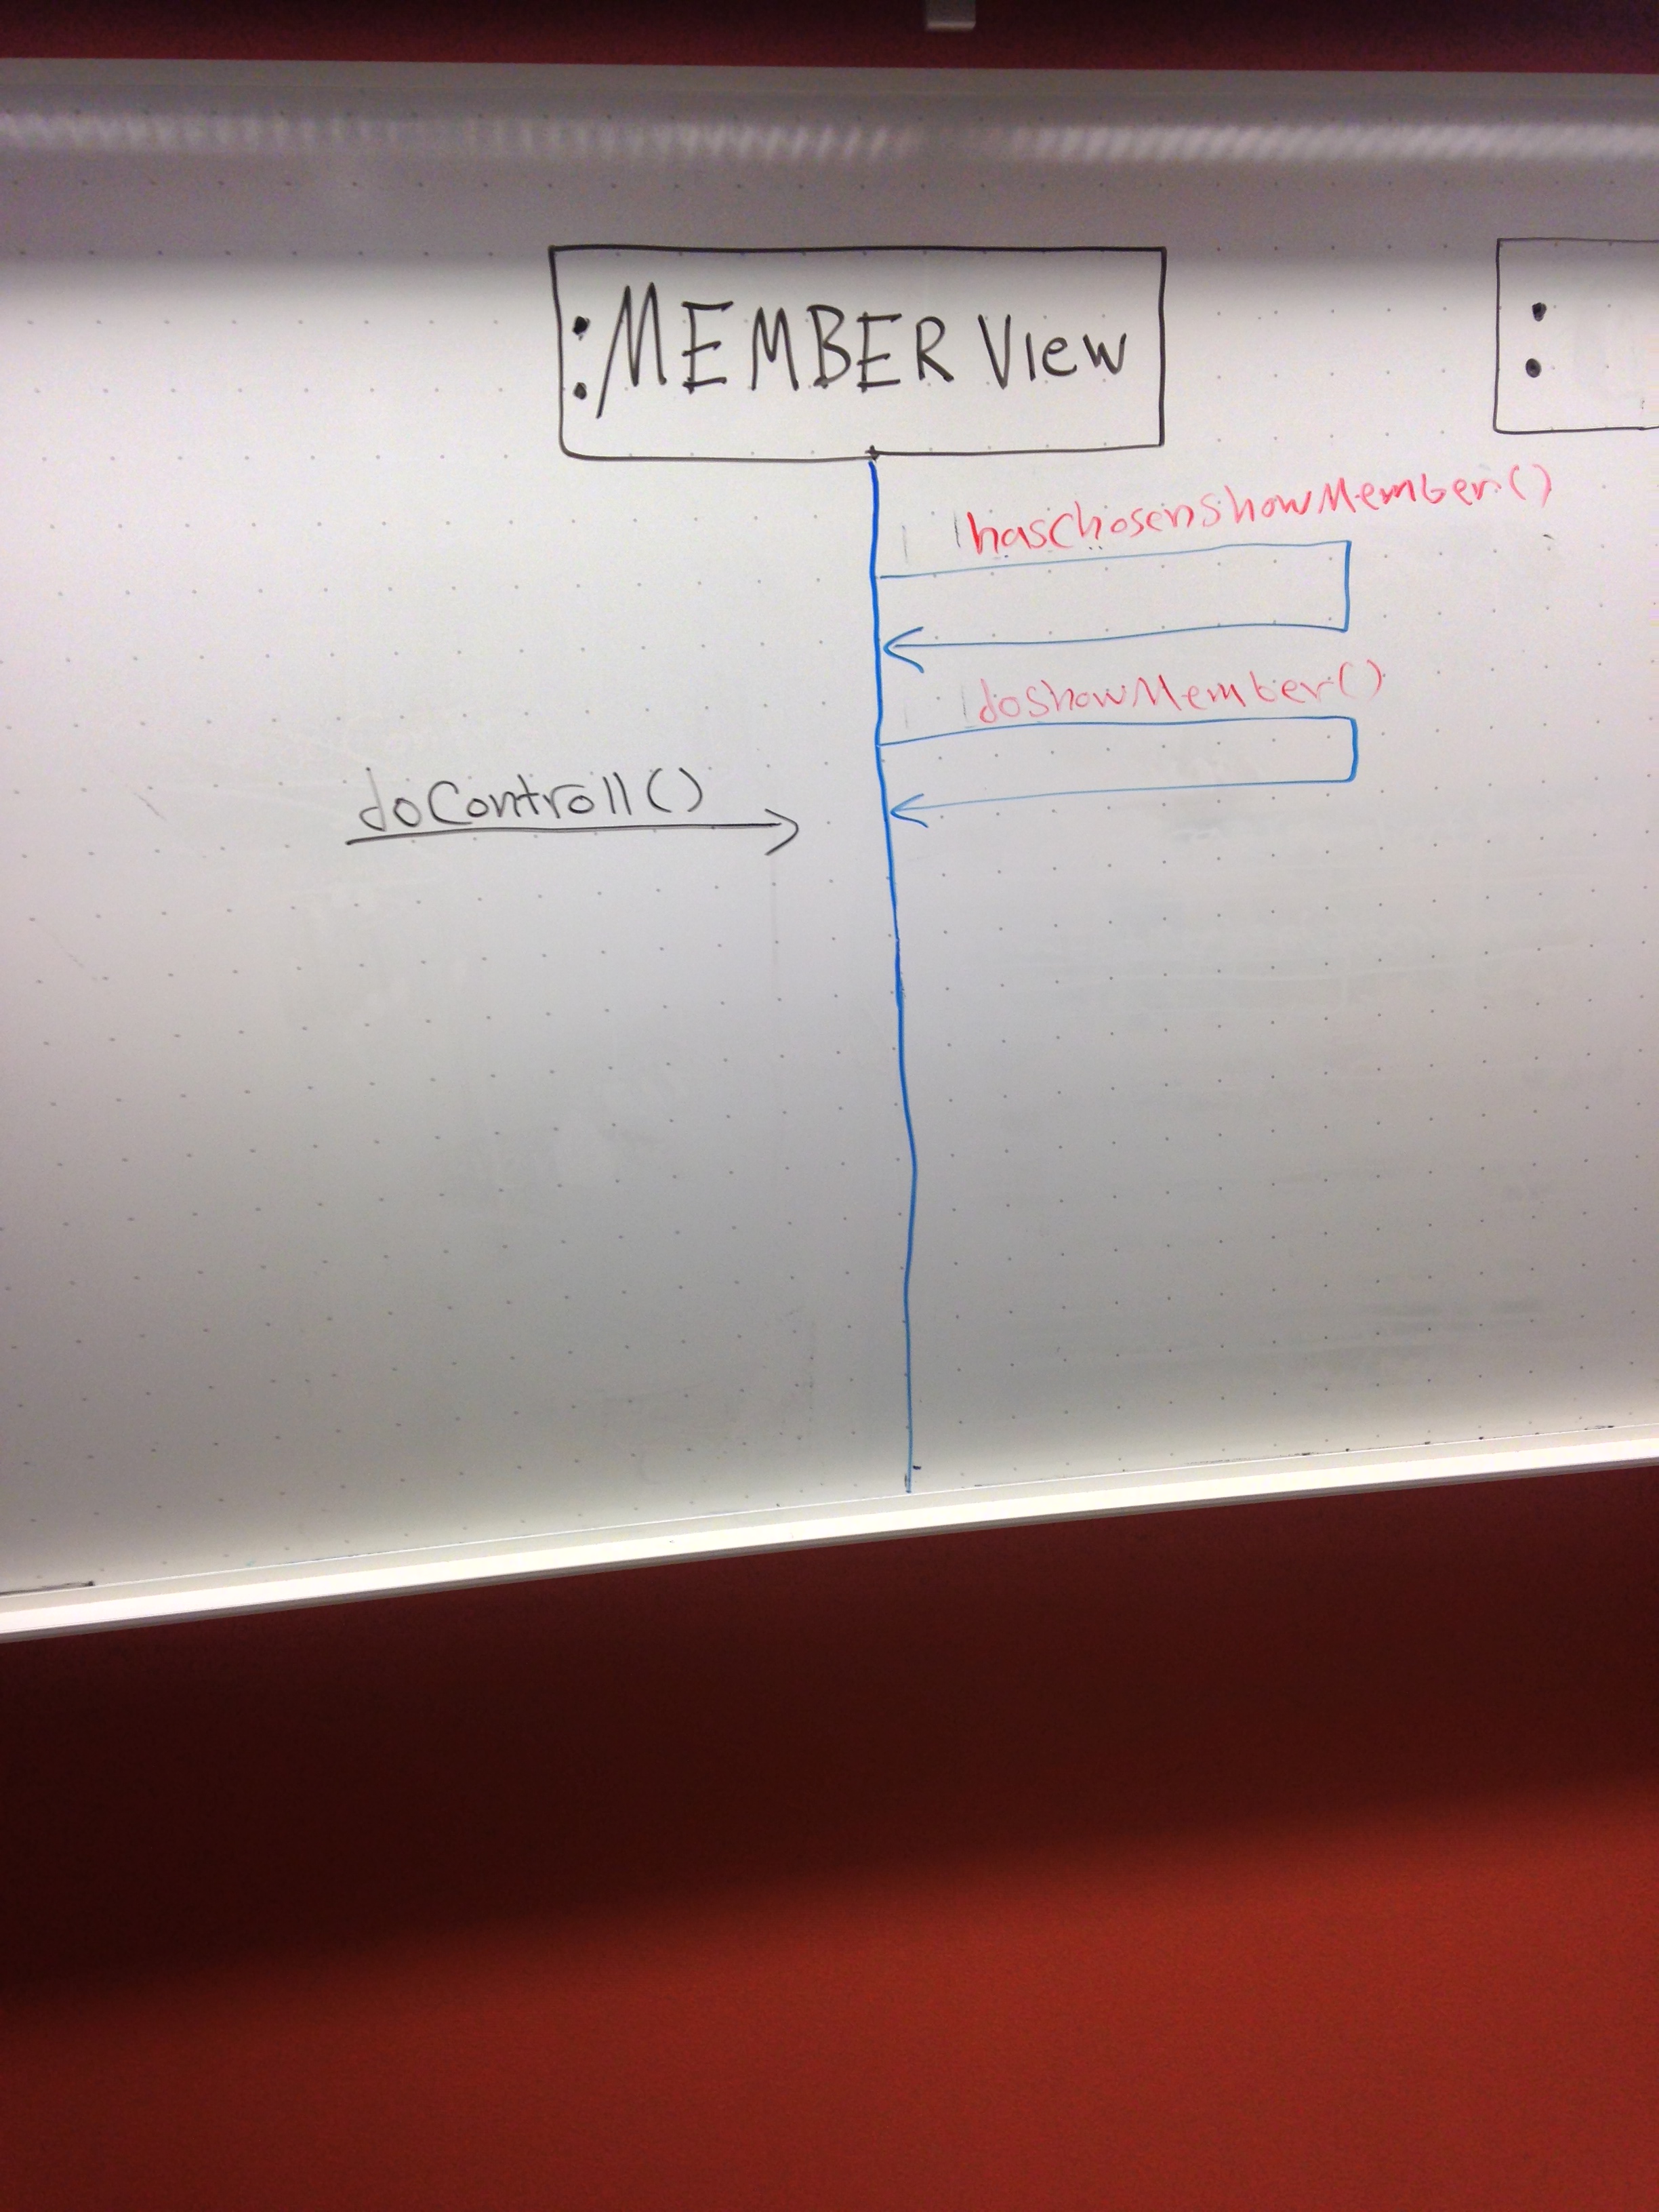 :MEMBER View
:
hasChosenShowMember()
doShowMember()
doControll()